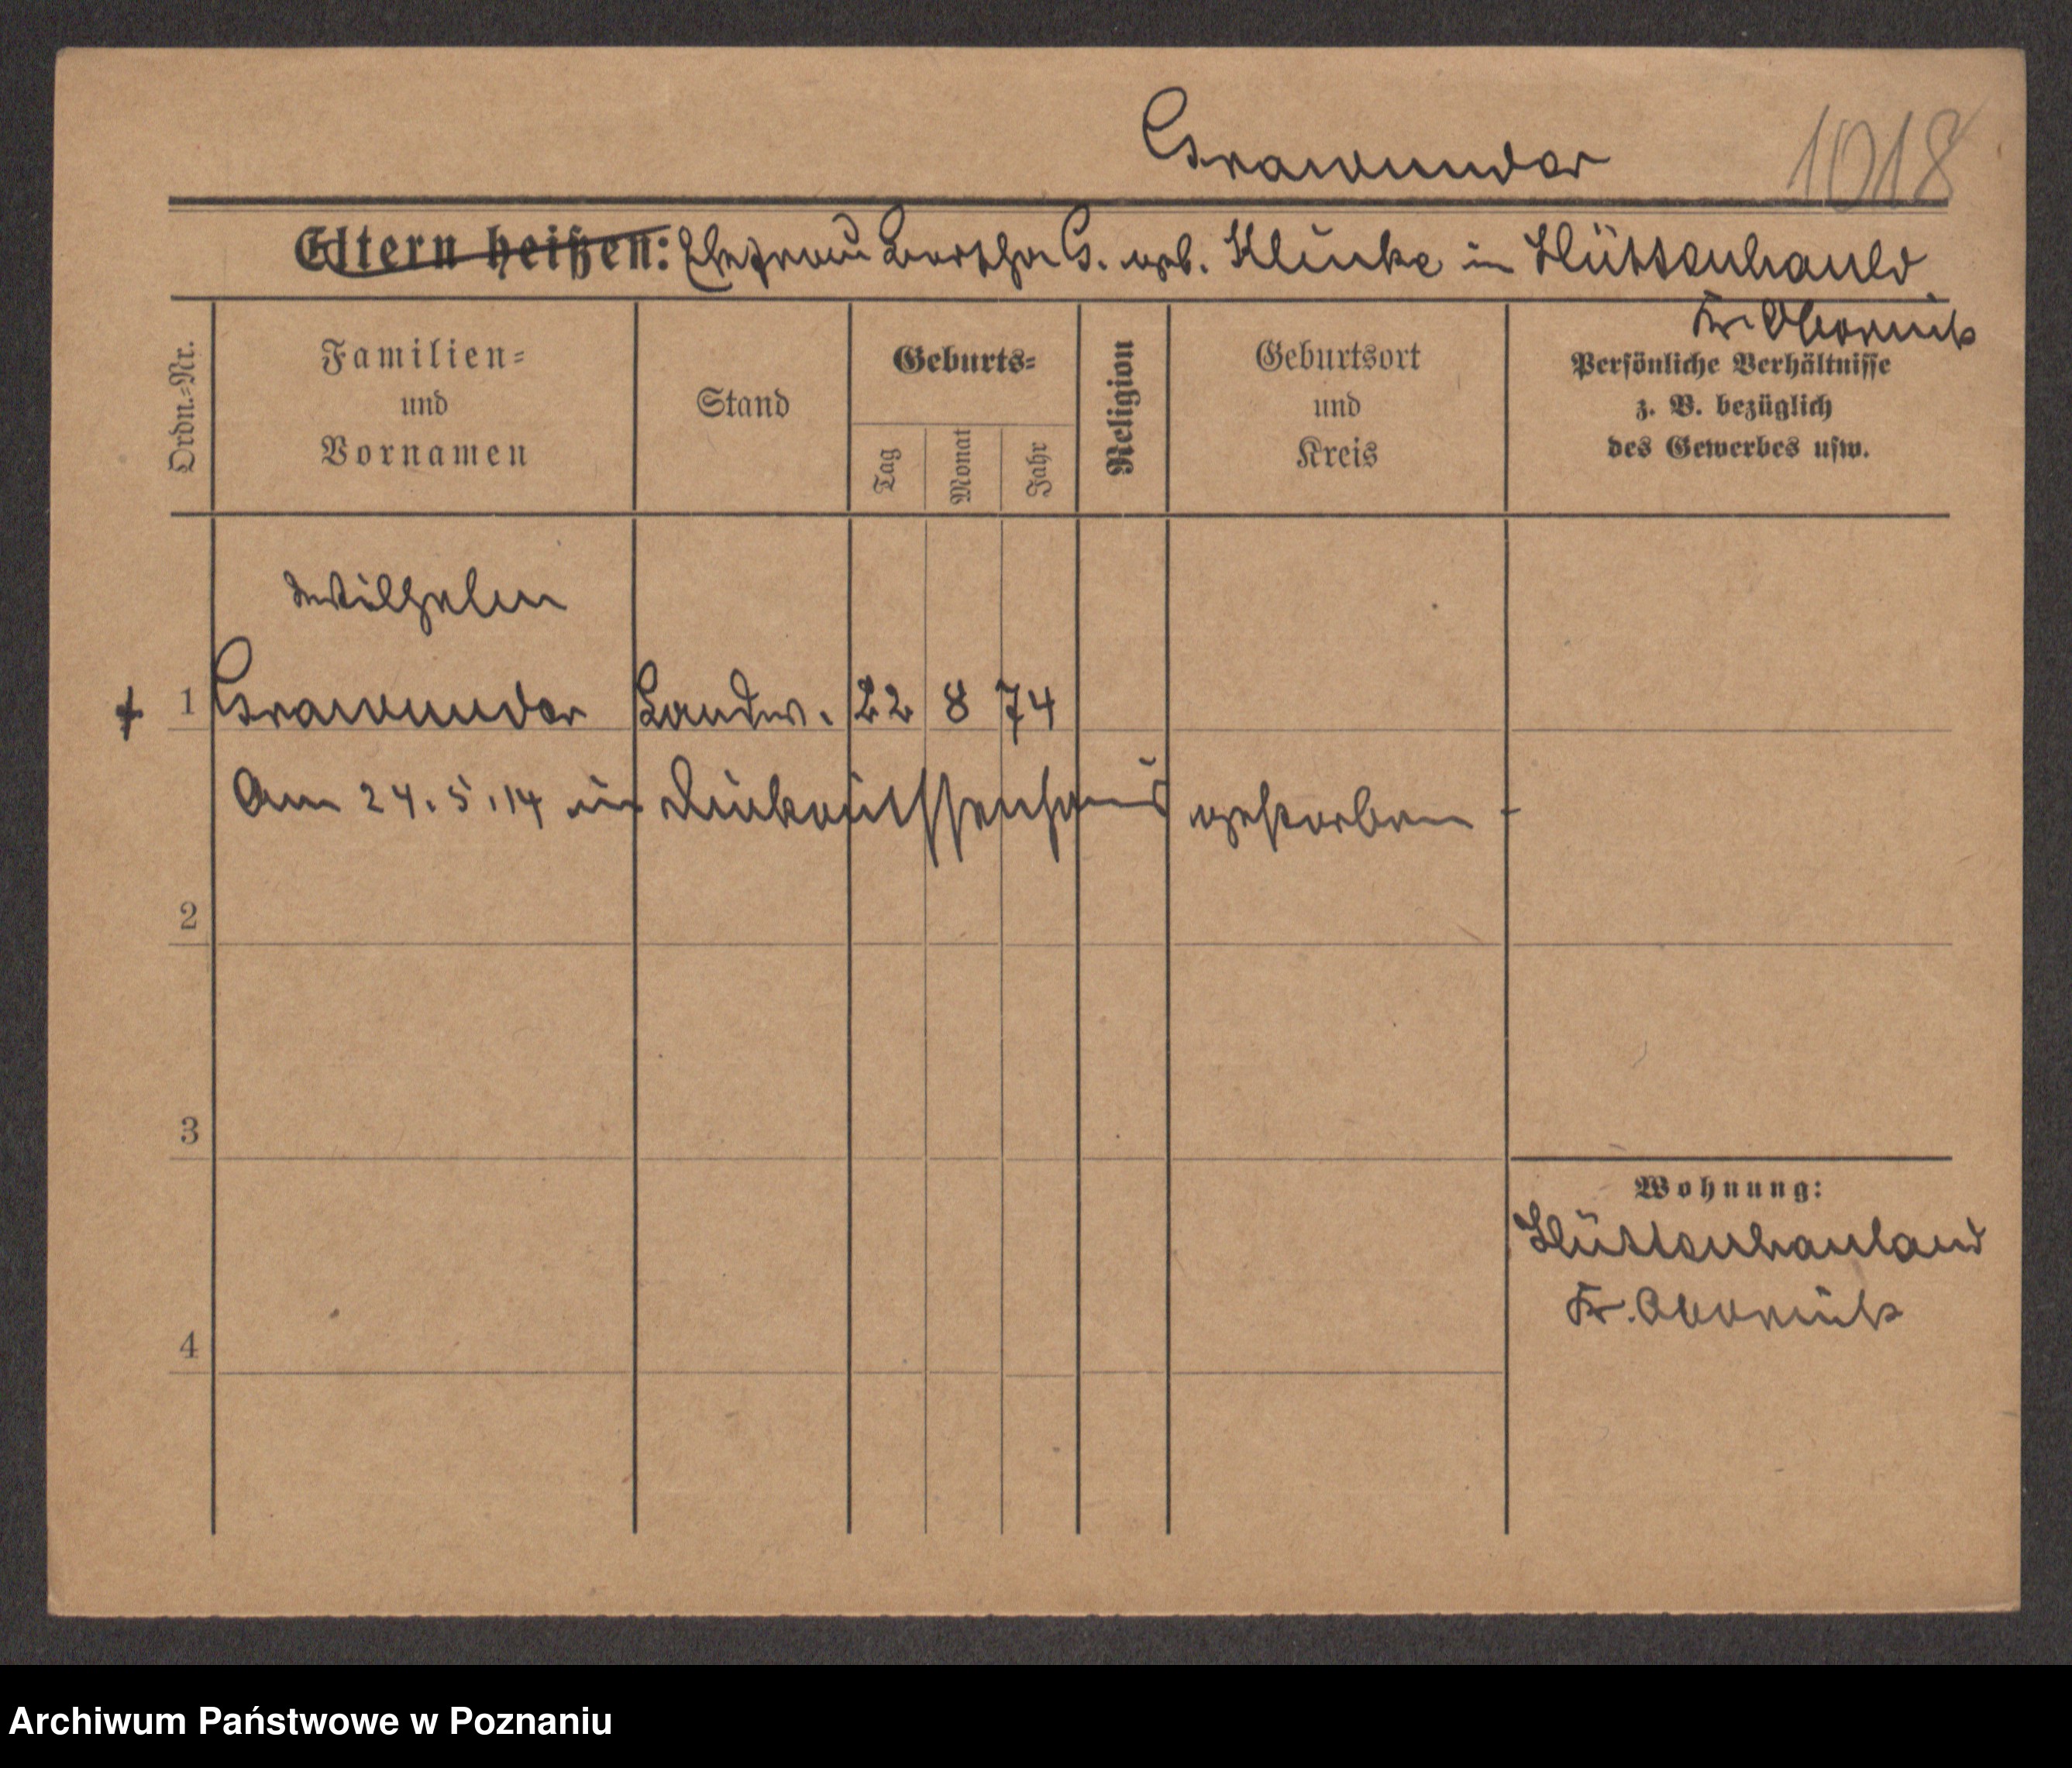 Grawunder 1018
Eltern heißen: Ehefrau Bertha G. geb. Klinke in Hüttenhauld
Kr. Obornik
Ordn.-Nr.
Familien-
und
Vornamen
Stand
Geburts-
Tag
Monat
Jahr
Religion
Geburtsort
und
Kreis
Persönliche Verhältnisse
z. B. bezüglich
des Gewerbes usw.
Wilhelm
+ 1 Grawunder Landw. 22 8 74
Am 24.5.14 im Diakonissenhaus gestorben -
2
3
Wohnung:
Hüttenhauland
Kr. Obornik
4
Archiwum Państwowe w Poznaniu